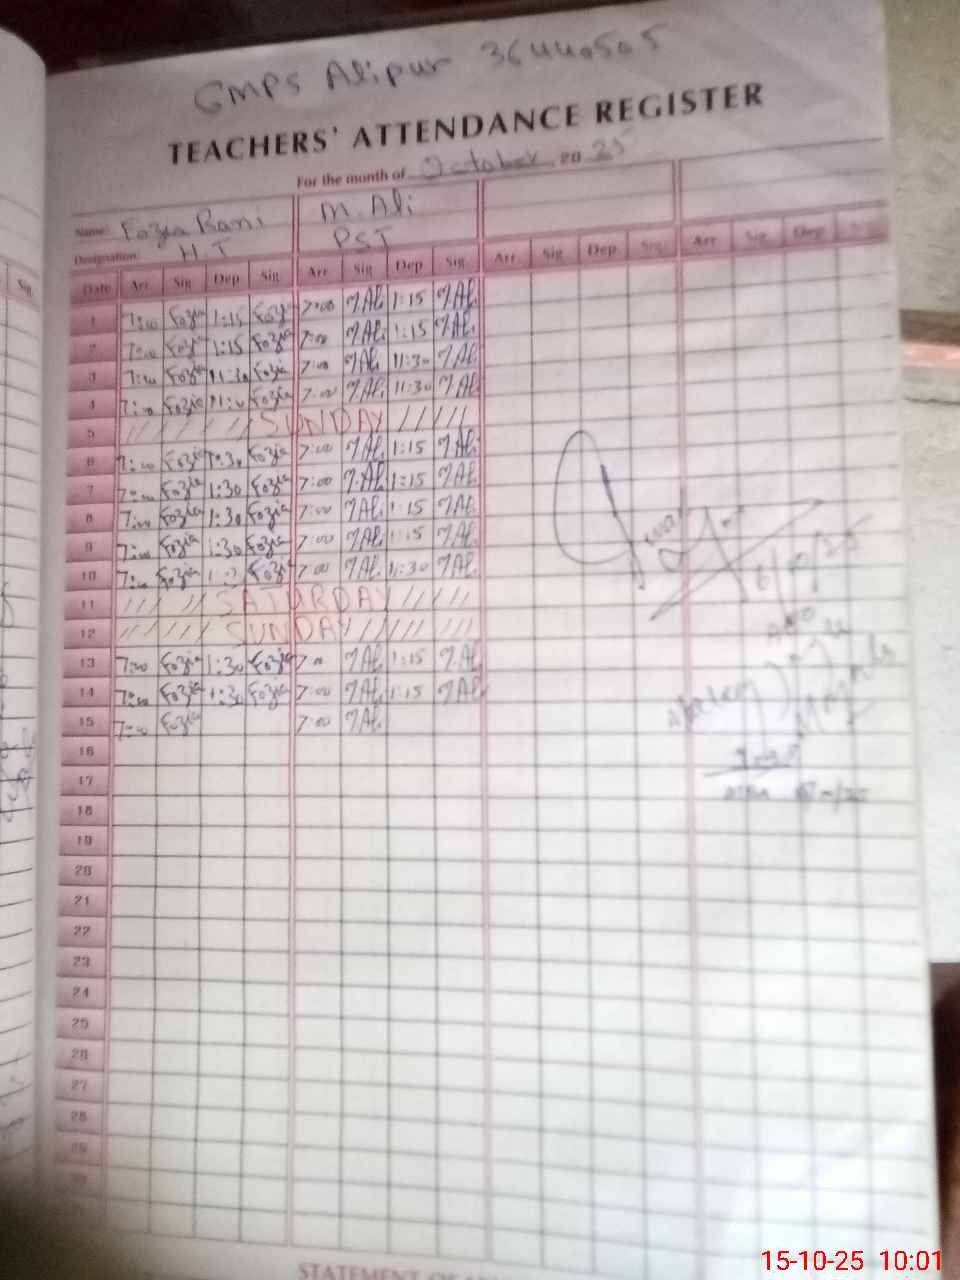 GMPS Alipur 36440505
TEACHERS' ATTENDANCE REGISTER
For the month of October 20 25
Name: Fozia Rani M. Ali
Designation: H T PST
Date Arr Sig Dep Sig Arr Sig Dep Sig Arr Sig Dep Sig Arr Sig Dep
1 7:00 Fozia 1:15 Fozia 7:00 M Ali 1:15 M Ali
2 7:00 Fozia 1:15 Fozia 7:00 M Ali 1:15 M Ali
3 7:00 Fozia 11:30 Fozia 7:00 M Ali 11:30 M Ali
4 7:00 Fozia Fozia 7:00 M Ali 11:30 M Ali
5 SUNDAY
6 7:00 Fozia Fozia 7:00 M Ali 1:15 M Ali
7 7:00 Fozia 1:30 Fozia 7:00 M Ali 1:15 M Ali
8 7:00 Fozia 1:30 Fozia 7:00 M Ali 1:15 M Ali
9 7:00 Fozia 1:30 Fozia 7:00 M Ali 1:15 M Ali
10 7:00 Fozia Fozia 7:00 M Ali 11:30 M Ali
11 SATURDAY
12 SUNDAY
13 7:00 Fozia 1:30 Fozia M Ali 1:15 M Ali
14 7:00 Fozia 1:30 Fozia 7:00 M Ali 1:15 M Ali
15 7:00 Fozia 7:00 M Ali
16
17
18
19
20
21
22
23
24
25
26
27
28
29
STATEMENT OF
15-10-25 10:01